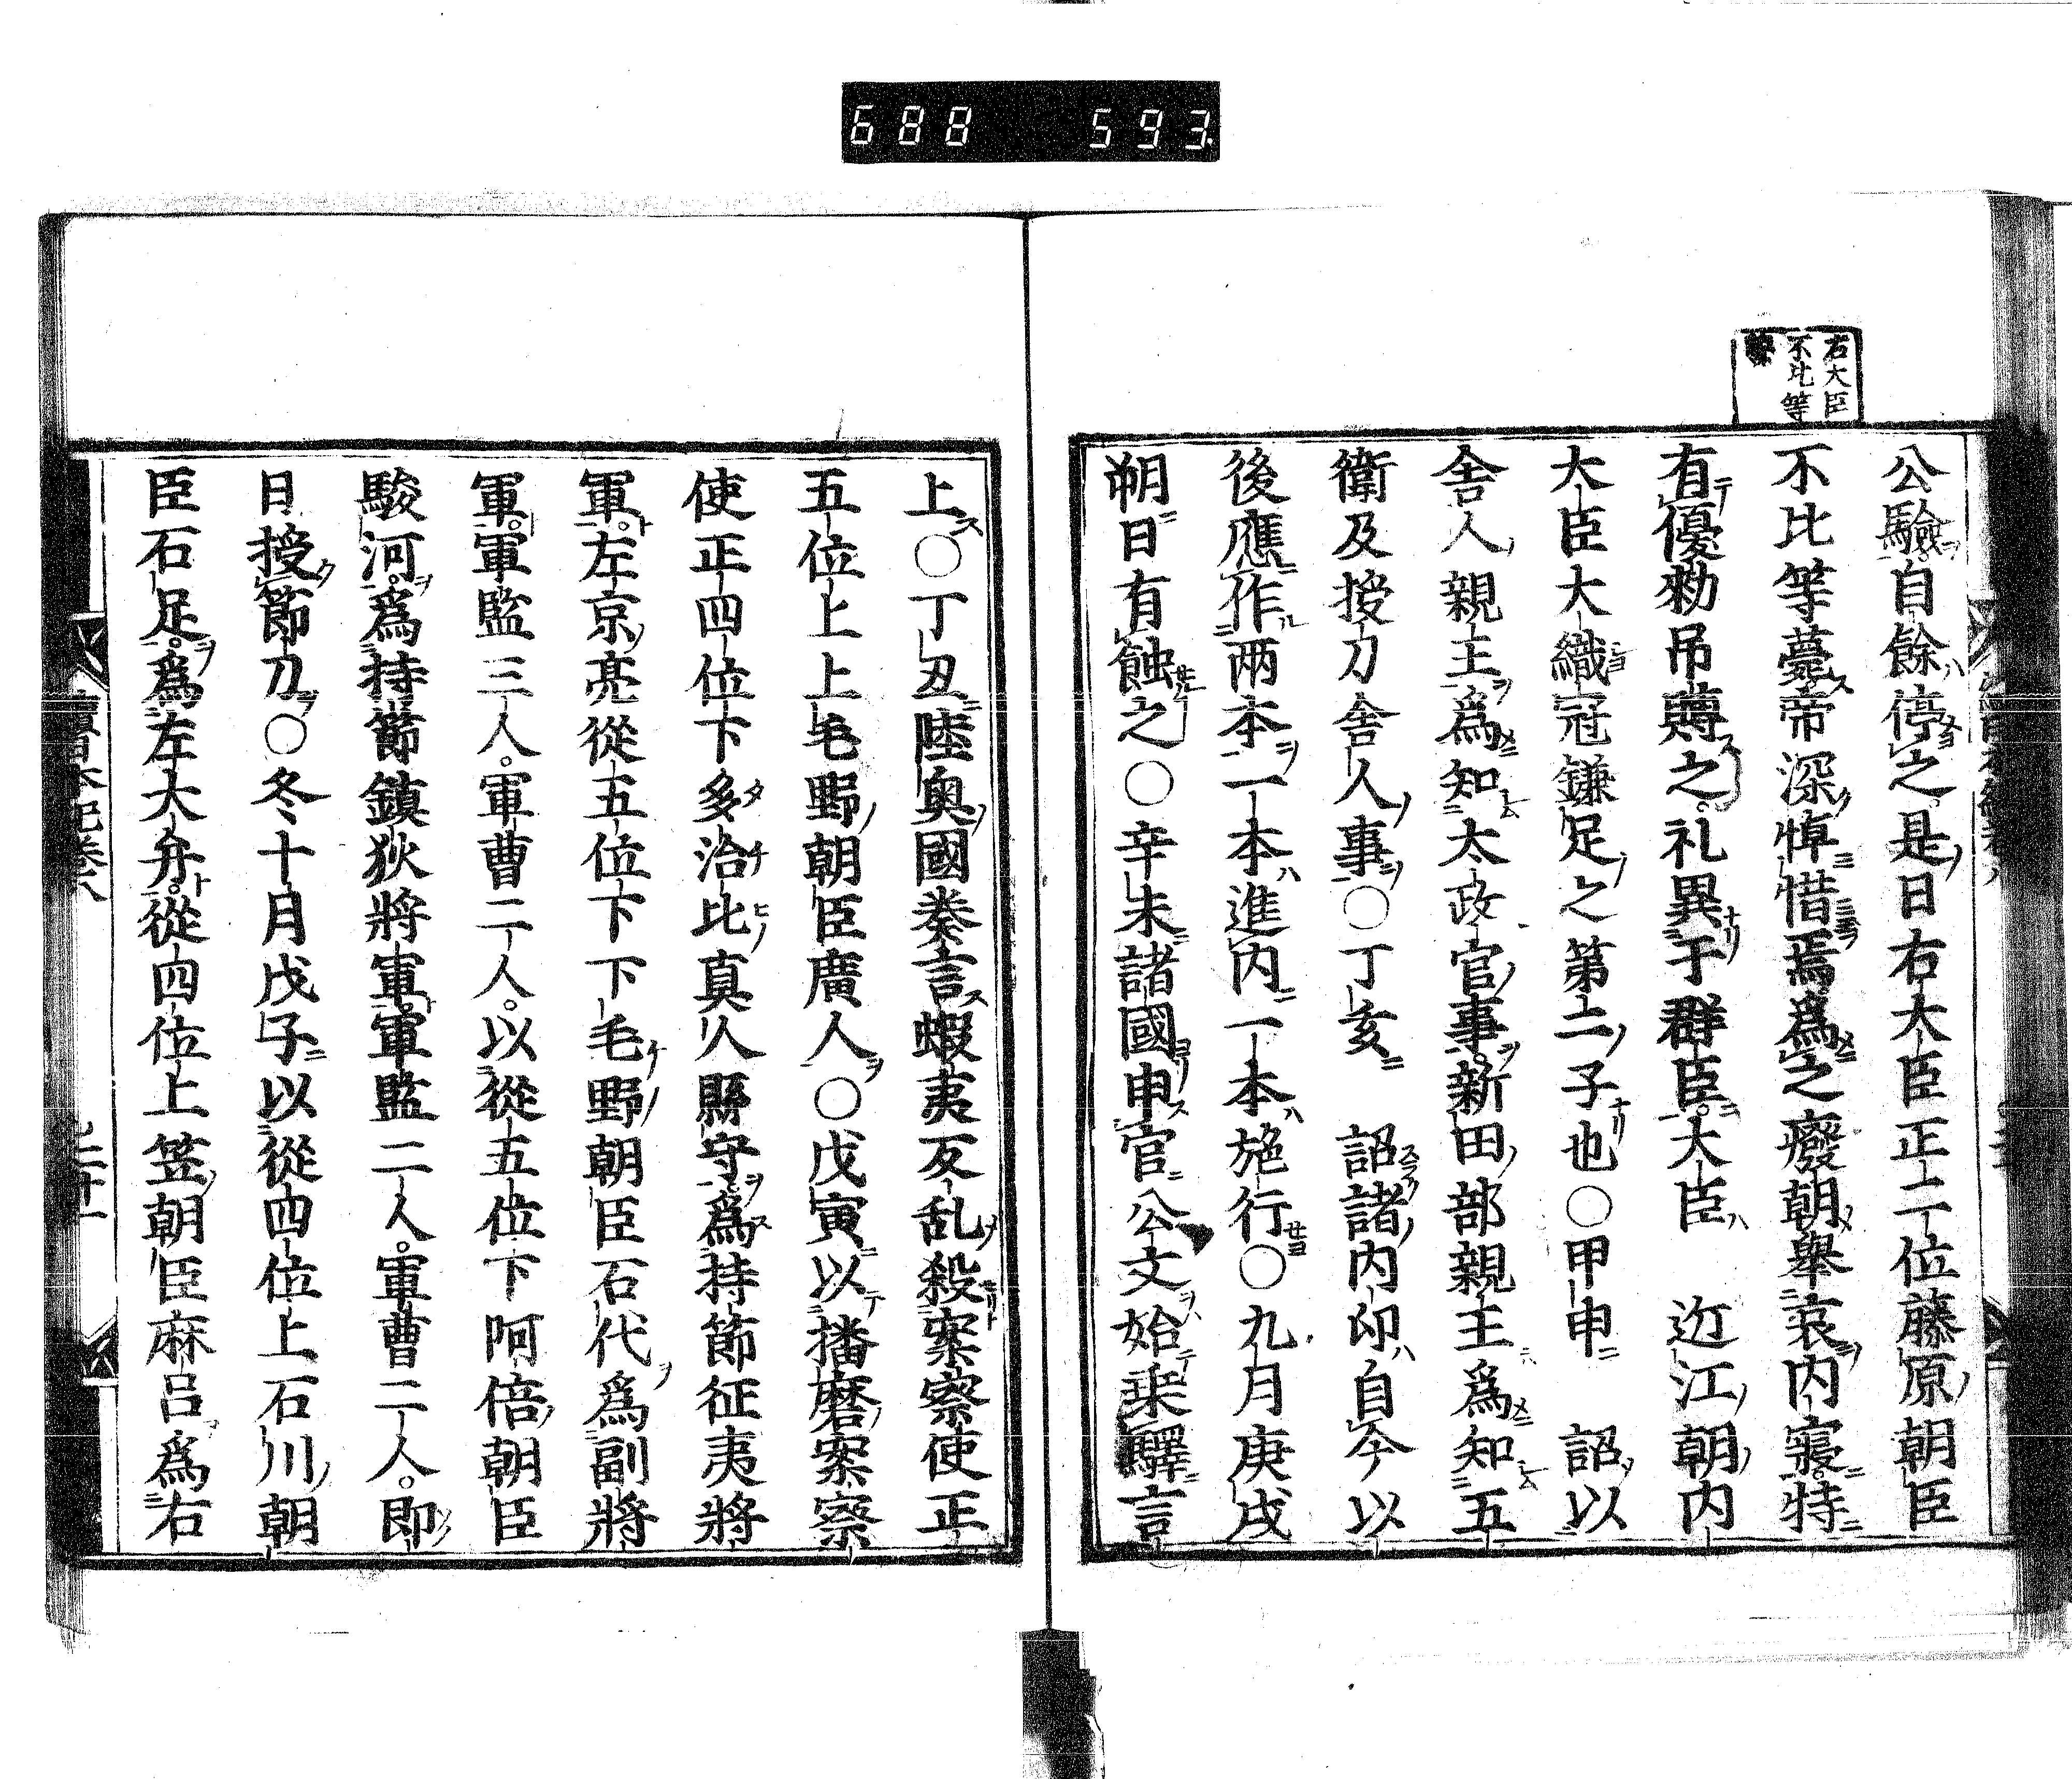 688 593
右大臣
不比等
公驗自餘停之是日右大臣正二位藤原朝臣
不比等薨帝深悼惜焉爲之癈朝舉哀内寢特
有優勑吊賻之礼異于群臣大臣 近江朝内
大臣大織冠鎌足之第二子也○甲申 詔以
舍人親王爲知太政官事新田部親王爲知五
衛及授刀舍人事○丁亥 詔諸内印自今以
後應作两本一本進内一本施行○九月庚戌
朔日有蝕之○辛未諸國申官公文始乗驛言
上○丁丑陸奥國奏言蝦夷反乱殺案察使正
五位上上毛野朝臣廣人○戊寅以播磨案察
使正四位下多治比真人縣守爲持節征夷將
軍左京亮從五位下下毛野朝臣石代爲副將
軍軍監三人軍曹二人以從五位下阿倍朝臣
駿河爲持節鎮狄將軍軍監二人軍曹二人即
日授節刀○冬十月戊子以從四位上石川朝
臣石足爲左大弁從四位上笠朝臣麻呂爲右